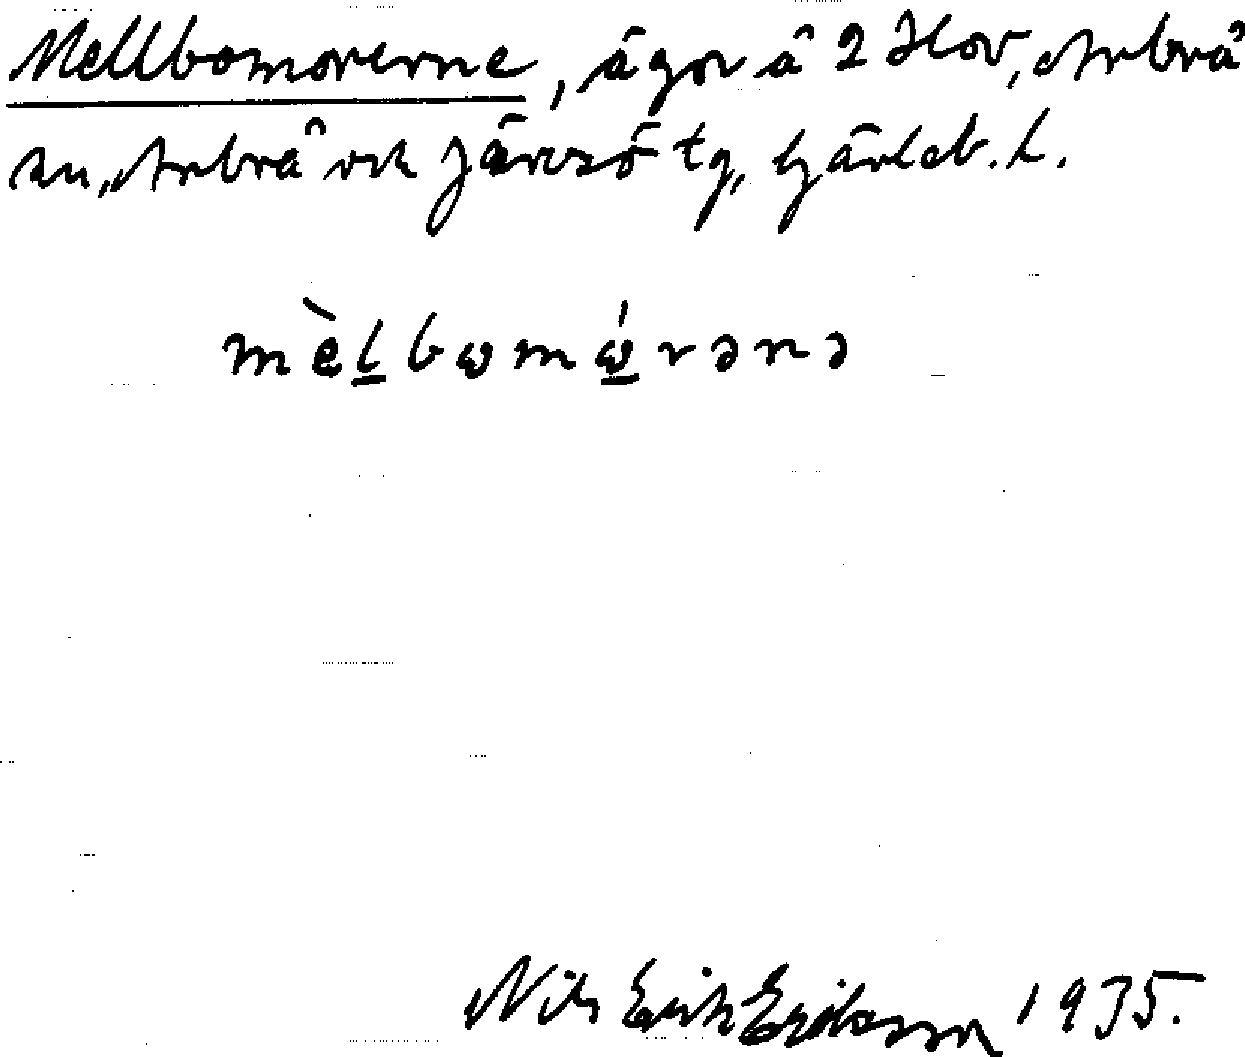 Mellbomorerne, ägor å 2 Hov, Arbrå
sn, Arbrå och Järvsö tg, Gävleb. l.
mὲlbωmώrənə
Nils Erik Eriksson 1935.